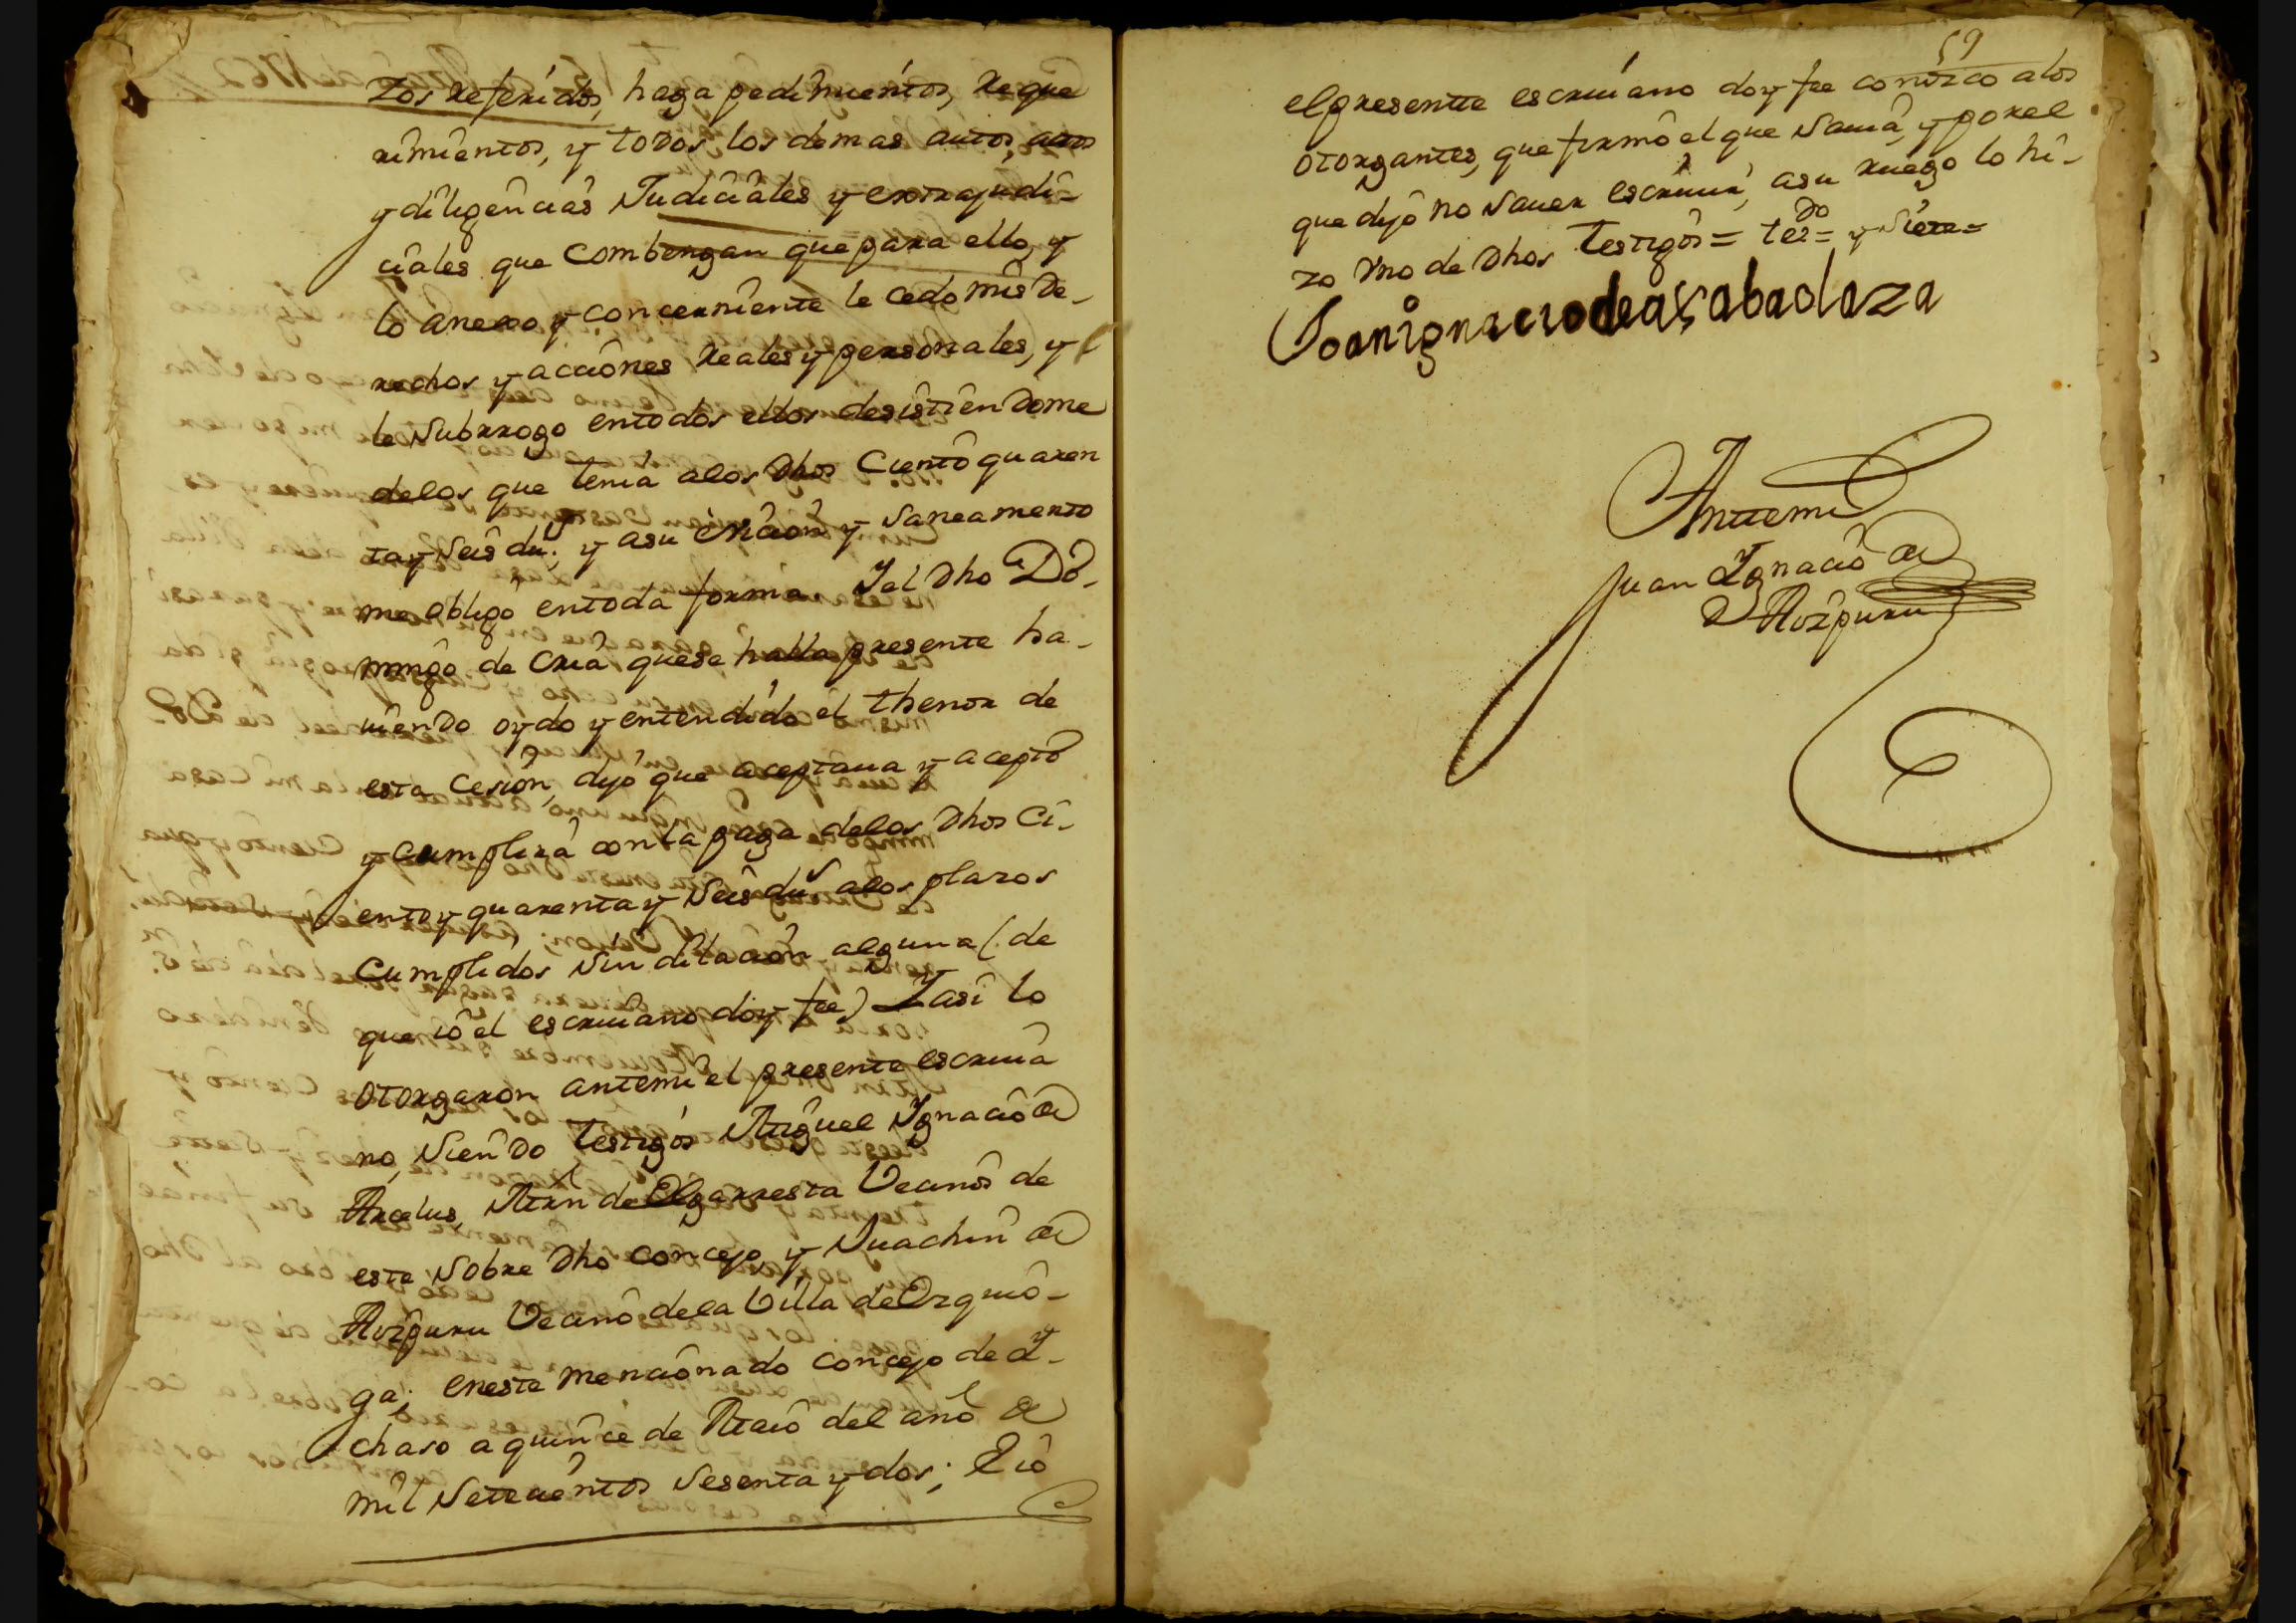 zos referidos, haga pedimientos, reque
rimientos, y todos los demas autos, autos
y diligencias Judiciales y extrajudi-
ciales que combengan que para ello, y
lo anexo y concerniente le cedo mis de-
rechos y acciones reales y personales, y
le subrrogo entodos ellos desistiendome
delos que tenia alos dhos Ciento quaren
tay seis du.s y asu evicion y saneamento
me obligo entoda forma. Yel dho Do-
mingo de Cria quese halla presente ha-
uiendo oydo y entendido el thenor de
esta cesion, dijo que aceptaua y acepto
y cumplira con la paga delos dhos Ci-
ento y quarenta y seis du.s alos plazos
Cumplidos sin dilacion alguna (de
que io el escriuano doy fee) Y asi lo
otorgaron antemi el presente escriua
no, siendo testigos Miguel Ygnacio de
Arcelus, Mrn de Elgarresta Vecinos de
este sobre dho concejo, y Juachin de
Aizpuru Vecino dela Villa de Ezquio-
ga; eneste mencionado concejo de Y-
chaso a quince de Maio del año de
mil setecientos sesenta y dos; E io
59
elpresente escriuano doy fee conozco alos
otorgantes, que firmo el que sauia, y porel
que dijo no sauer escriuir, asu ruego lo hi-
zo Vno de dhos testigos = tes.do = y siete =
Joanignacio de açabadaza
Antemi
Juan Ygnacio de
Aizpuru